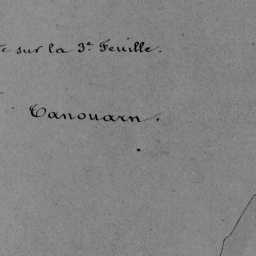 sur la 3.e Feuille.
Tanouarn.